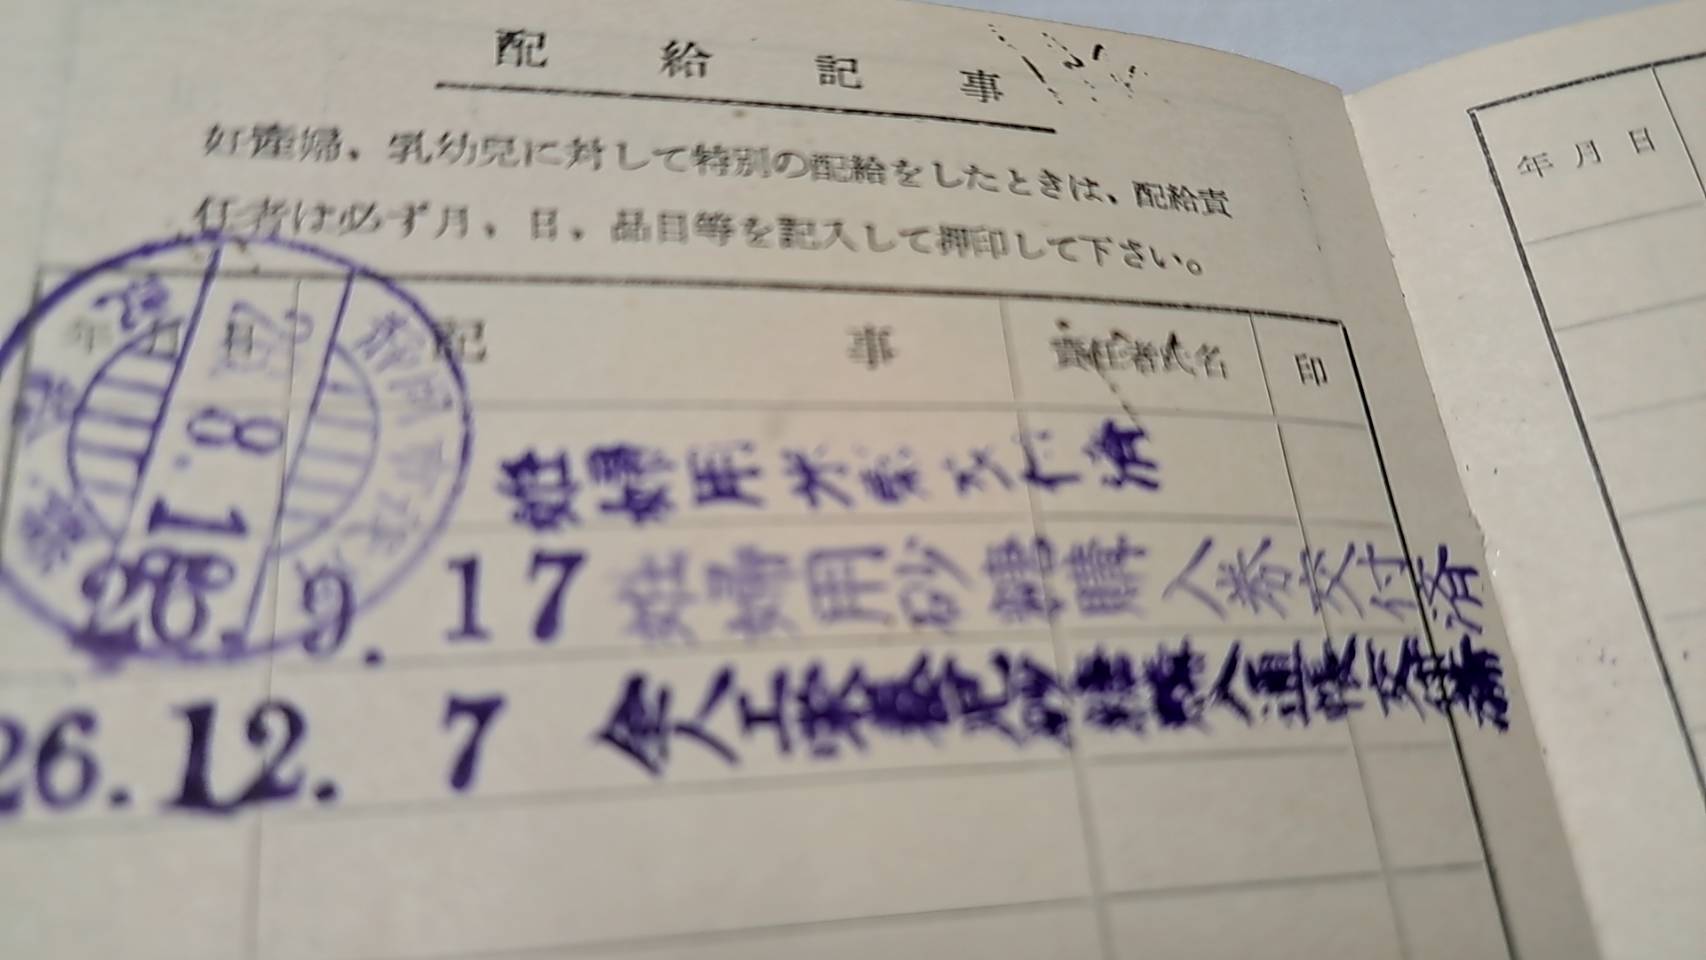 配給記事
妊産婦、乳幼児に対して特別の配給をしたときは、配給責
任者は必ず月、日、品目等を記入して押印して下さい。
年月日 記事 責任者氏名 印
26 8.18 妊婦用 交付済
26.9.17 妊婦用砂糖購入券交付済
26.12.7 人工栄養児砂糖購入通帳交付済
年月日